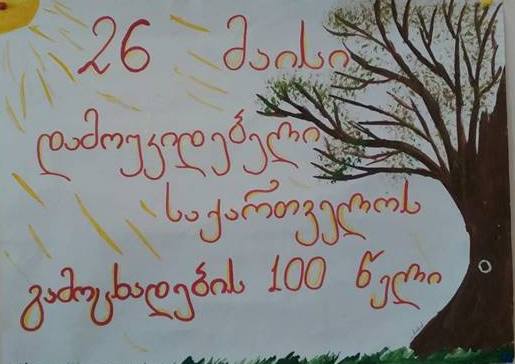 26 მაისი
დამოუკიდებელი
საქართველოს
გამოცხადების 100 წელი